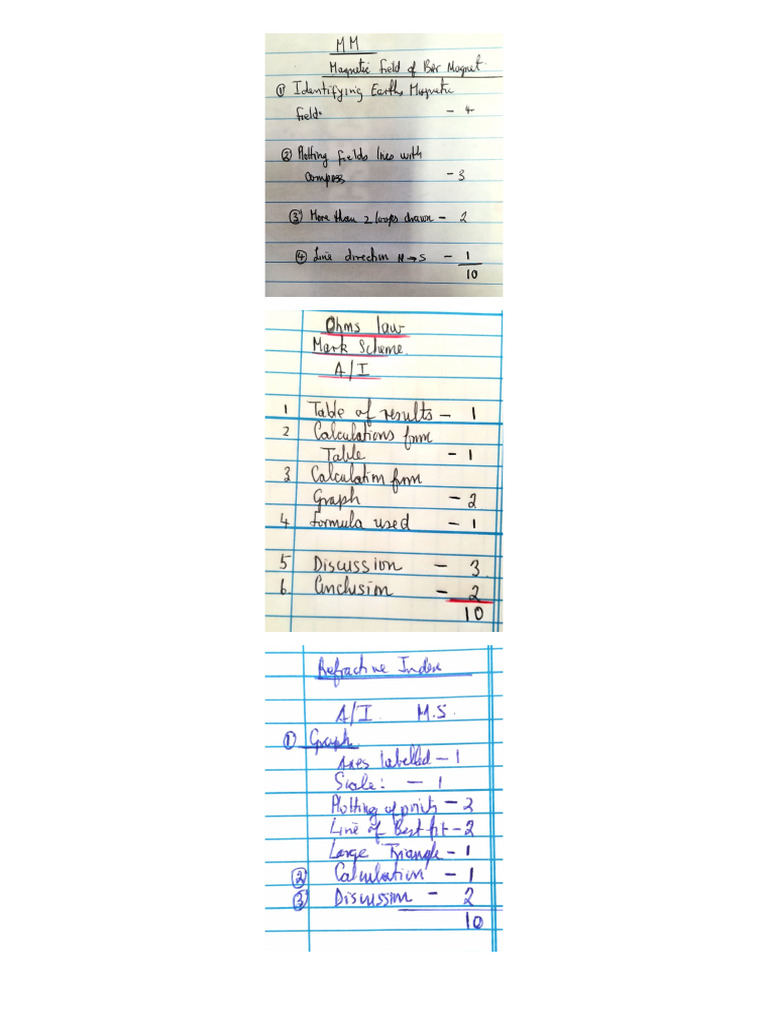 MM
Magnetic Field of Bar Magnet
① Identifying Earths Magnetic
field. - 4
② Plotting fields lines with
compass - 3
③ More than 2 loops drawn - 2
④ Line direction N→S - 1
10
Ohms law
Mark Scheme.
A/I
1 Table of results - 1
2 Calculations from
Table - 1
3 Calculation from
Graph - 2
4 formula used - 1
5 Discussion - 3
6. Conclusion - 2
10
Refractive Index
A/I. M.S.
① Graph
Axes labelled - 1
Scale: - 1
Plotting of points - 2
Line of Best fit - 2
Large Triangle - 1
② Calculation - 1
③ Discussion - 2
10